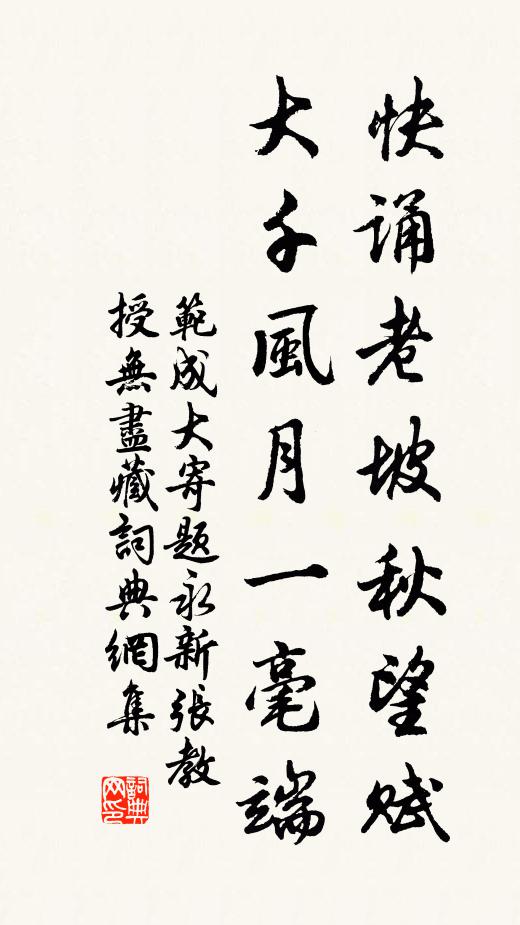 快誦老坡秋望賦
大千風月一毫端
範成大寄題永新張教
授無盡藏詞典網集
詞典網印